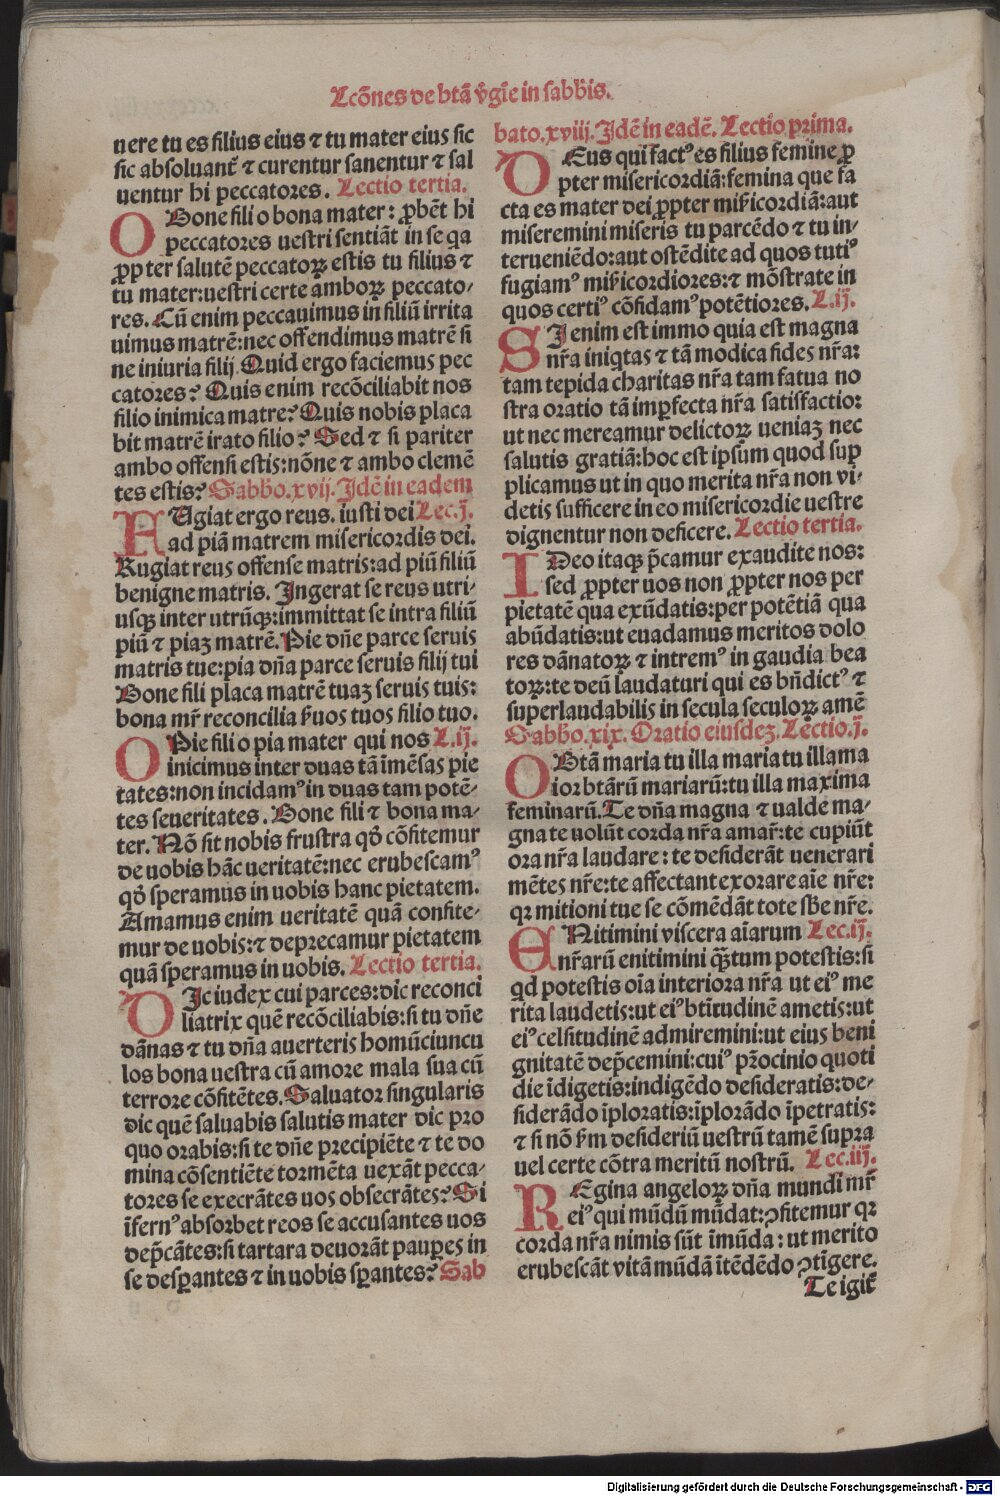 Lcōnes de btā v̄gīe in sabbīs.
uere tu es filius eius ⁊ tu mater eius sic
sic absoluant᷑ ⁊ curentur sanentur ⁊ sal
uentur hi peccatores. Lectio tertia.
O Bone fili o bona mater: ꝓbēt hi
peccatores uestri sentiāt in se qa
ꝓpter salutē peccatoꝝ estis tu filius ⁊
tu mater:uestri certe amboꝝ peccato-
res. Cū enim peccauimus in filiū irrita
uimus matrē:nec offendimus matrē si
ne iniuria filij. Quid ergo faciemus pec
catores? Quis enim recōciliabit nos
filio inimica matre? Quis nobis placa
bit matrē irato filio? Sed ⁊ si pariter
ambo offensi estis:nōne ⁊ ambo clemē
tes estis? Sabbo.xvij. Idē in eadem
FUgiat ergo reus. iusti dei Lec.j.
ad piā matrem misericordis dei.
Rugiat reus offense matris:ad piū filiū
benigne matris. Ingerat se reus utri-
usqꝫ inter utrūqꝫ:immittat se intra filiū
piū ⁊ piaꝫ matrē. Pie dn̄e parce seruis
matris tue:pia dn̄a parce seruis filij tui
Bone fili placa matrē tuaꝫ seruis tuis:
bona mr̄ reconcilia ẜuos tuos filio tuo.
O Pie fili o pia mater qui nos L.ij.
inicimus inter duas tā īmēsas pie
tates:non incidamꝰ in duas tam potē-
tes seueritates. Bone fili ⁊ bona ma-
ter. Nō sit nobis frustra qd̄ cōfitemur
de uobis hāc ueritatē:nec erubescamꝰ
qd̄ speramus in uobis hanc pietatem.
Amamus enim ueritatē quā confite-
mur de uobis:⁊ deprecamur pietatem
quā speramus in uobis. Lectio tertia.
DIc iudex cui parces:dic reconci
liatrix quē recōciliabis:si tu dn̄e
dānas ⁊ tu dn̄a auerteris homūciuncu
los bona uestra cū amore mala sua cū
terrore cōfitētes. Saluator singularis
dic quē saluabis salutis mater dic pro
quo orabis:si te dn̄e precipiēte ⁊ te do
mina cōsentiēte tormēta uexāt pecca-
tores se execrātes uos obsecrātes? Si
īfernꝰ absorbet reos se accusantes uos
dep̄cātes:si tartara deuorāt pauꝑes in
se desꝑantes ⁊ in uobis sꝑantes? Sab
bato.xviij. Idē in eadē. Lectio prima.
DEus qui factꝰ es filius femine ꝓ
pter misericordiā:femina que fa
cta es mater dei ꝓpter mīcordiā:aut
miseremini miseris tu parcēdo ⁊ tu in-
terueniēdo:aut ostēdite ad quos tutiꝰ
fugiamꝰ mīcordiores:⁊ mōstrate in
quos certiꝰ cōfidamꝰ potētiores. L.ij.
SI enim est immo quia est magna
nr̄a iniqtas ⁊ tā modica fides nr̄a:
tam tepida charitas nr̄a tam fatua no
stra oratio tā imꝑfecta nr̄a satisfactio:
ut nec mereamur delictoꝝ ueniaꝫ nec
salutis gratiā:hoc est ipsum quod sup
plicamus ut in quo merita nr̄a non vi-
detis sufficere in eo misericordie uestre
dignentur non deficere. Lectio tertia.
IDeo itaqꝫ p̄camur exaudite nos:
sed ꝓpter uos non ꝓpter nos per
pietatē qua exūdatis:per potētiā qua
abūdatis:ut euadamus meritos dolo
res dānatoꝝ ⁊ intremꝰ in gaudia bea
toꝝ:te deū laudaturi qui es bn̄dictꝰ ⁊
superlaudabilis in secula seculoꝝ amē
Sabbo.xix. Oratio eiusdeꝫ. Lectio.j.
O Btā maria tu illa maria tu illa ma
ior btārū mariarū:tu illa maxima
feminarū. Te dn̄a magna ⁊ ualde ma-
gna te uolūt corda nr̄a amar̄:te cupiūt
ora nr̄a laudare: te desiderāt uenerari
mētes nr̄e:te affectant exorare aīe nr̄e:
qꝛ mitioni tue se cōmēdāt tote sb̄e nr̄e.
ENitimini viscera aīarum Lec.ij.
nr̄arū enitimini qꝫ̄tum potestis:si
qd potestis oīa interiora nr̄a ut eiꝰ me
rita laudetis:ut eiꝰ btītudinē ametis:ut
eiꝰ celsitudinē admiremini:ut eius beni
gnitatē dep̄cemini:cuiꝰ pr̄ocinio quoti
die īdigetis:indigēdo desideratis:de-
siderādo īploratis:īplorādo īpetratis:
⁊ si nō ẜm desideriū uestrū tamē supra
uel certe cōtra meritū nostrū. Lec.iij.
REgina angeloꝝ dn̄a mundi mr̄
eiꝰ qui mūdū mūdat:ꝯfitemur qꝛ
corda nr̄a nimis sūt īmūda: ut merito
erubescāt vitā mūdā ītēdēdo ꝯtīgere.
Te igit᷑
Digitalisierung gefördert durch die Deutsche Forschungsgemeinschaft - DFG